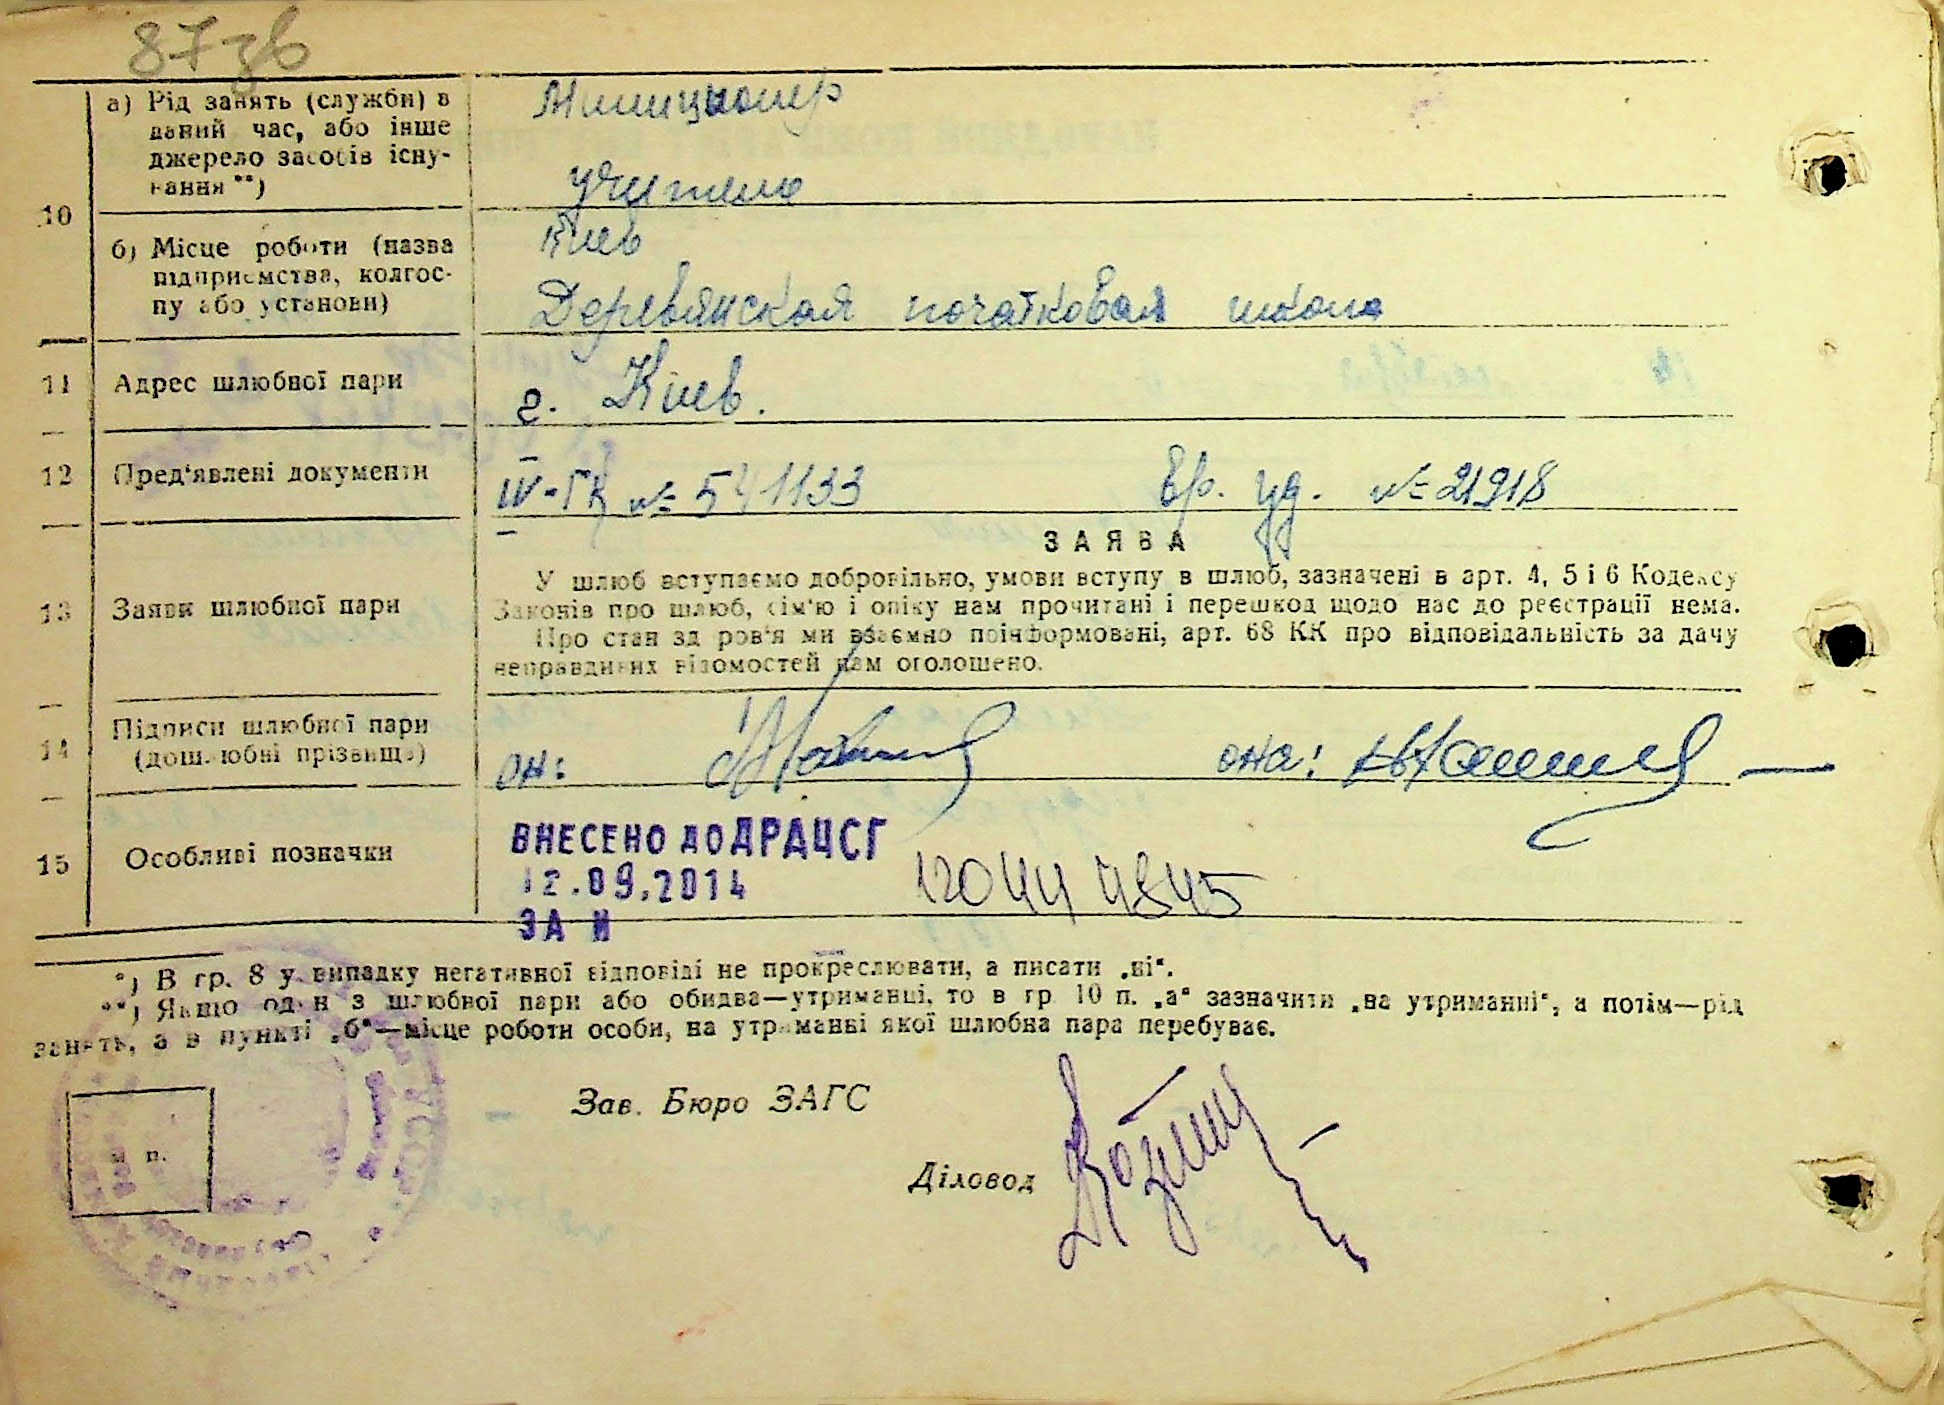 87 зв
а) Рід занять (служби) в
даний час, або інше
джерело засобів існу-
вання **)
Милиционер
учитель
10
б) Місце роботи (назва
підприємства, колгос-
пу або установи)
Киев
Деревянская початковая школа
11 Адрес шлюбної пари
г. Київ.
12 Пред'явлені документи
IV-ГК № 541133 Вр. уд. № 21918
ЗАЯВА
13 Заяви шлюбної пари
У шлюб вступаємо добровільно, умови вступу в шлюб, зазначені в арт. 4, 5 і 6 Кодексу
Законів про шлюб, сім'ю і опіку нам прочитані і перешкод щодо нас до реєстрації нема.
Про стан здоров'я ми взаємно поінформовані, арт. 68 КК про відповідальність за дачу
неправдивих відомостей нам оголошено.
14 Підписи шлюбної пари
(дошлюбні прізвища)
он: она:
15 Особливі позначки
ВНЕСЕНО ДО ДРАЦСГ
12.09.2014
ЗА №
12044 4845
*) В гр. 8 у випадку негативної відповіді не прокреслювати, а писати „ні“.
**) Якщо один з шлюбної пари або обидва—утриманці, то в гр 10 п. „а“ зазначити „на утриманні“, а потім—рід
занять, а в пункті „б“—місце роботи особи, на утриманні якої шлюбна пара перебуває.
м п.
Зав. Бюро ЗАГС
Діловод